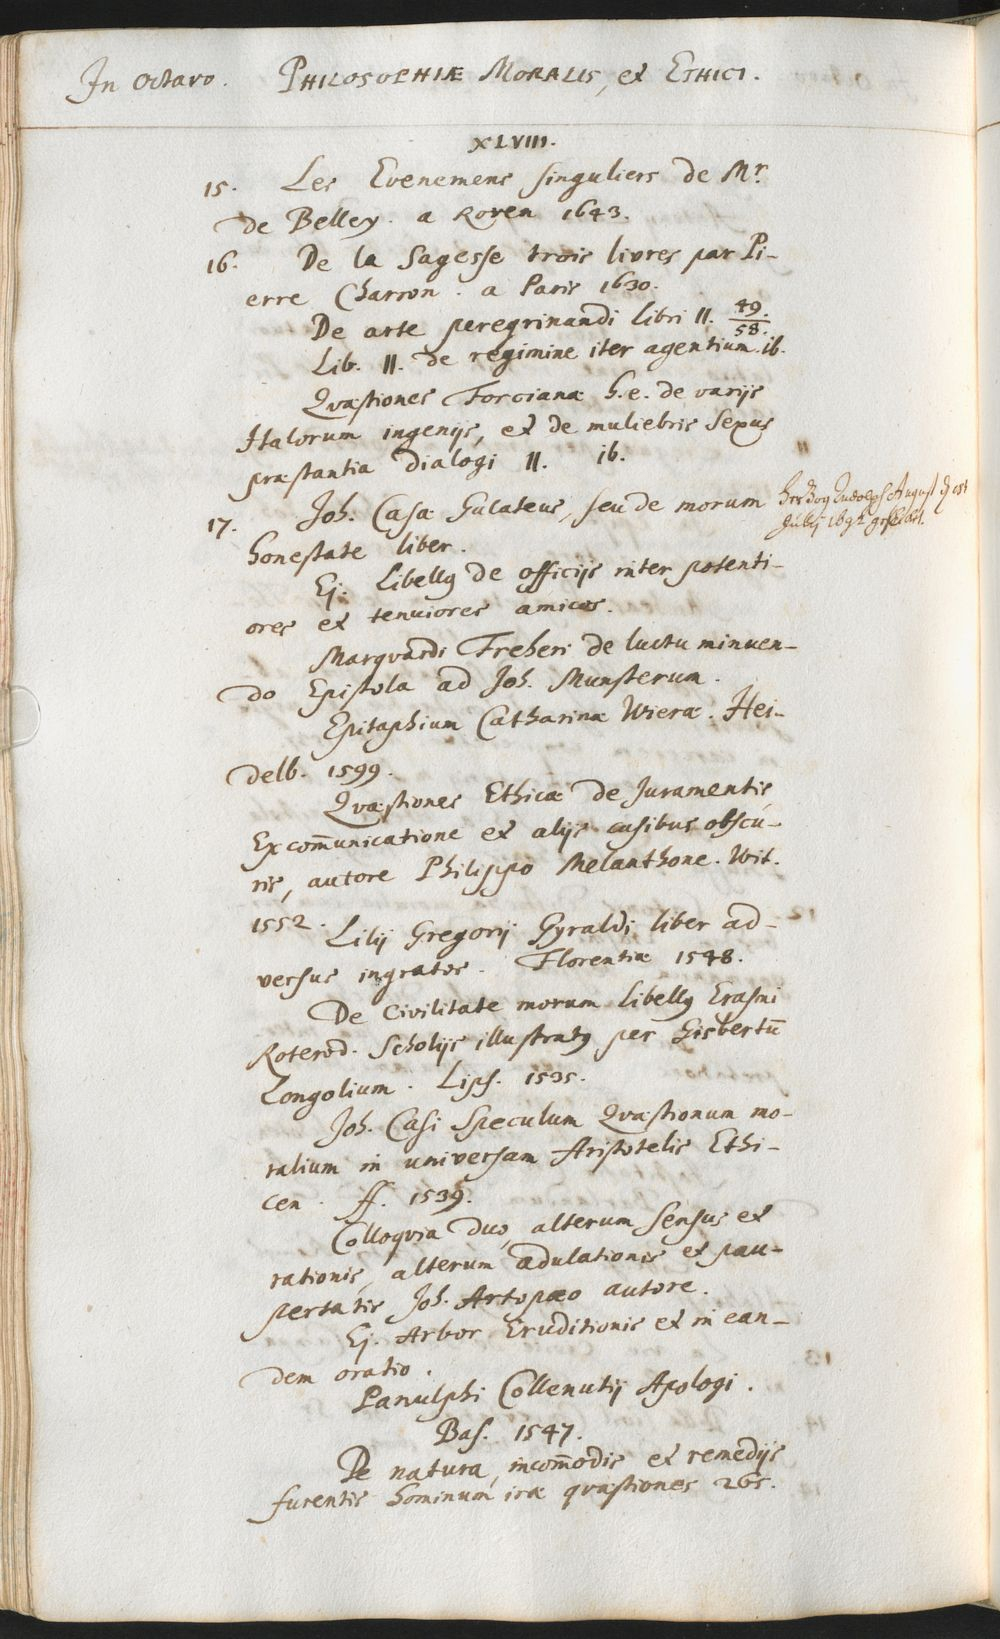 In Octavo. PHILOSOPHIÆ MORALIS, et ETHICI.
XLVIII.
15. Les Evenemens singuliers de Mr.
de Belley. a Roven 1643.
16. De la Sagesse trois livres par Pi-
erre Charron. a Paris 1630.
De arte peregrinandi libri II. 49./58.
Lib. II. de regimine iter agentium. ib.
Qvæstiones Forcianæ h.e. de varijs
Italorum ingenijs, et de muliebris Sexus
præstantia Dialogi II. ib.
17. Joh. Casæ Galateus, seu de morum
honestate liber.
Ej. Libellꝰ de officijs inter potenti-
ores et tenuiores amicos.
Marqvardi Freheri de luctu minuen-
do Epistola ad Joh. Munsterum.
Epitaphium Catharinæ Wieræ. Hei-
delb. 1599.
Qvæstiones Ethicæ de Juramentis,
Excom̄unicatione et alijs casibus obscu-
ris, autore Philippo Melanthone. Wit.
1552.
Lilij Gregorij Gyraldi liber ad-
versus ingratos. Florentiæ 1548.
De Civilitate morum libellꝰ Erasmi
Roterod. Scholijs illustratꝰ per Gisbertū
Longolium. Lips. 1535.
Joh. Casi Speculum Qvæstionum mo-
ralium in universam Aristotelis Ethi-
cen. ff. 1539.
Colloqvia duo, alterum Sensus et
rationis, alterum adulationis et pau-
pertatis Joh. Artopæo autore.
Ej. Arbor Eruditionis et in ean-
dem oratio.
Panulphi Collenutij Apologi.
Bas. 1547.
De natura, incom̄odis et remedijs
furentis hominum iræ qvæstiones 265.
"
Herzog Rudolph August
Julij 1692